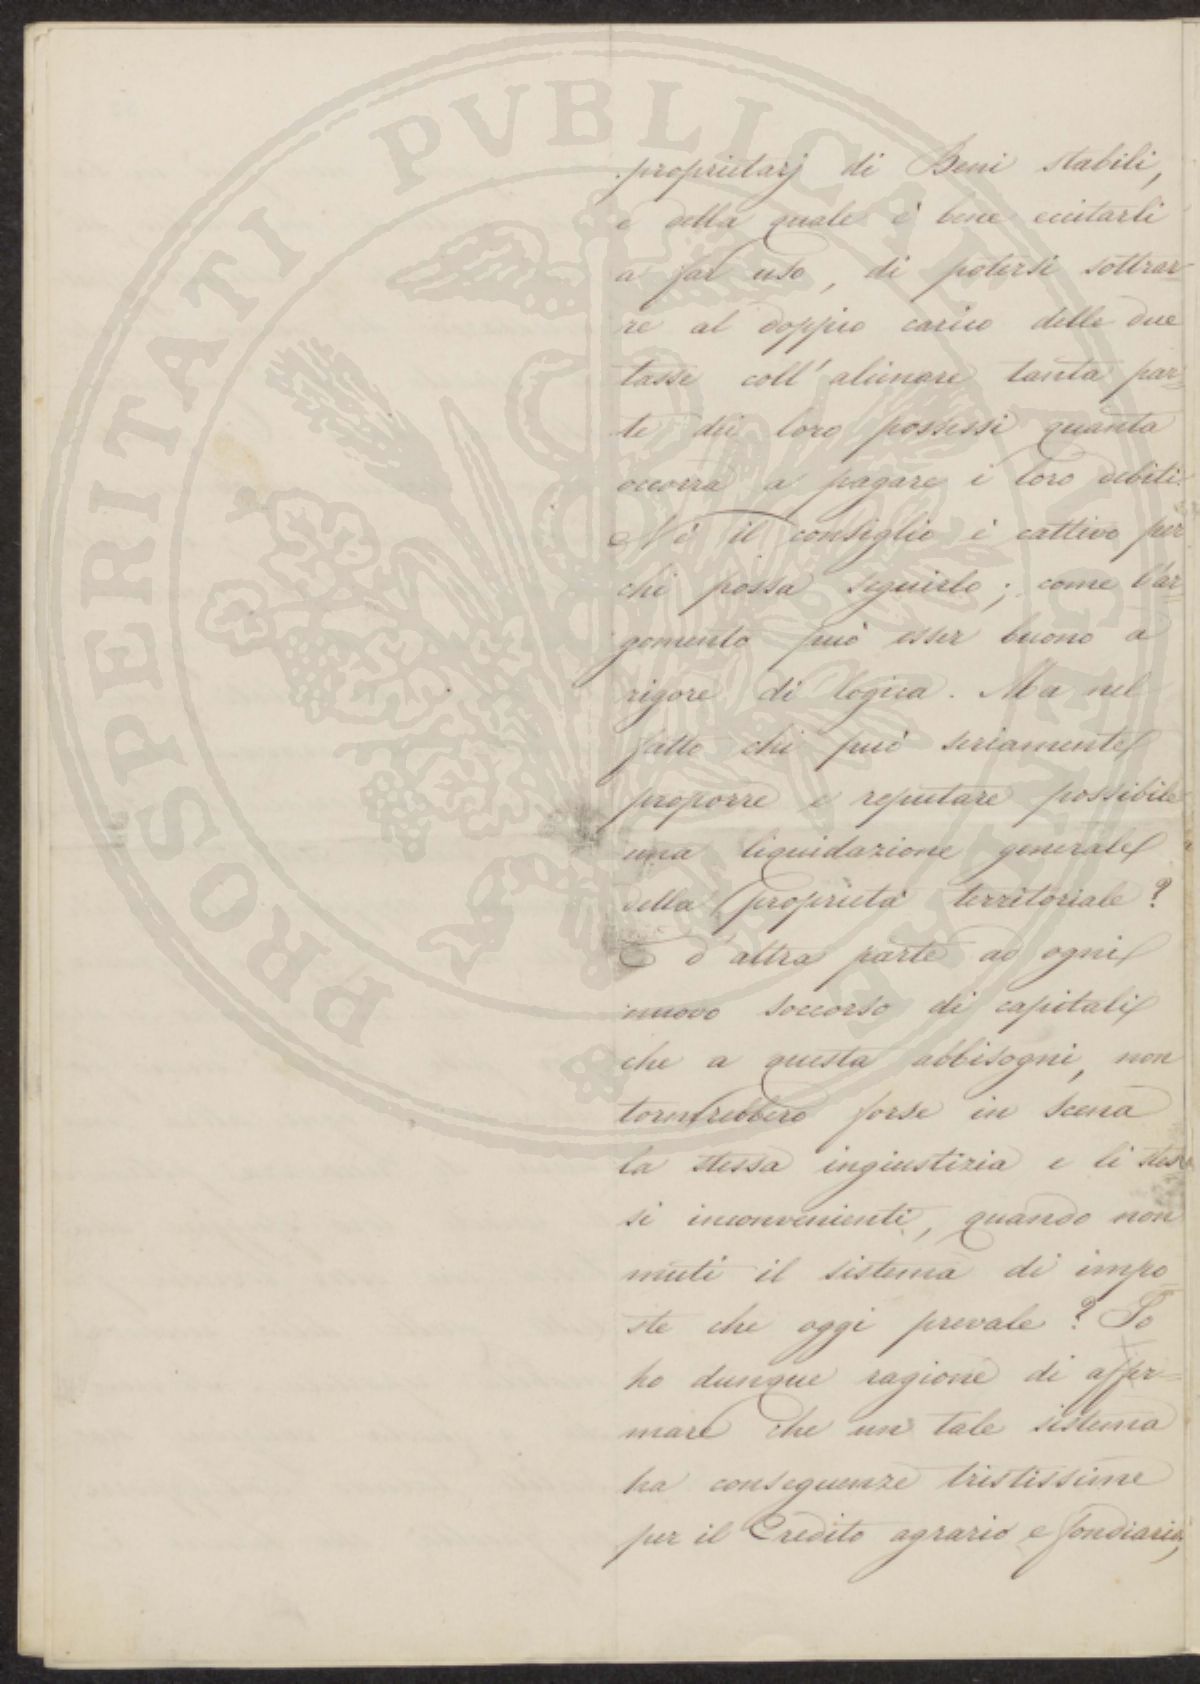 PROSPERITATI PVBLICAE AVGENDAE
proprietarj di Beni stabili,
e della quale è bene eccitarli
a far uso, di potersi sottrar-
re al doppio carico delle due
tasse coll' alienare tanta par-
te dei loro possessi quanta
occorra a pagare i loro debiti.
Nè il consiglio è cattivo per
chi possa seguirlo; come l'ar-
gomento può esser buono a
rigore di logica. Ma nel
fatto chi può seriamente
proporre e reputare possibile
una liquidazione generale
della proprietà territoriale?
E d'altra parte ad ogni
nuovo soccorso di capitali
che a questa abbisogni, non
tornerebbero forse in scena
la stessa ingiustizia e li stes-
si inconvenienti, quando non
muti il sistema di impo-
ste che oggi prevale? Io
ho dunque ragione di affer-
mare che un tale sistema
ha conseguenze tristissime
per il Credito agrario e fondiario,